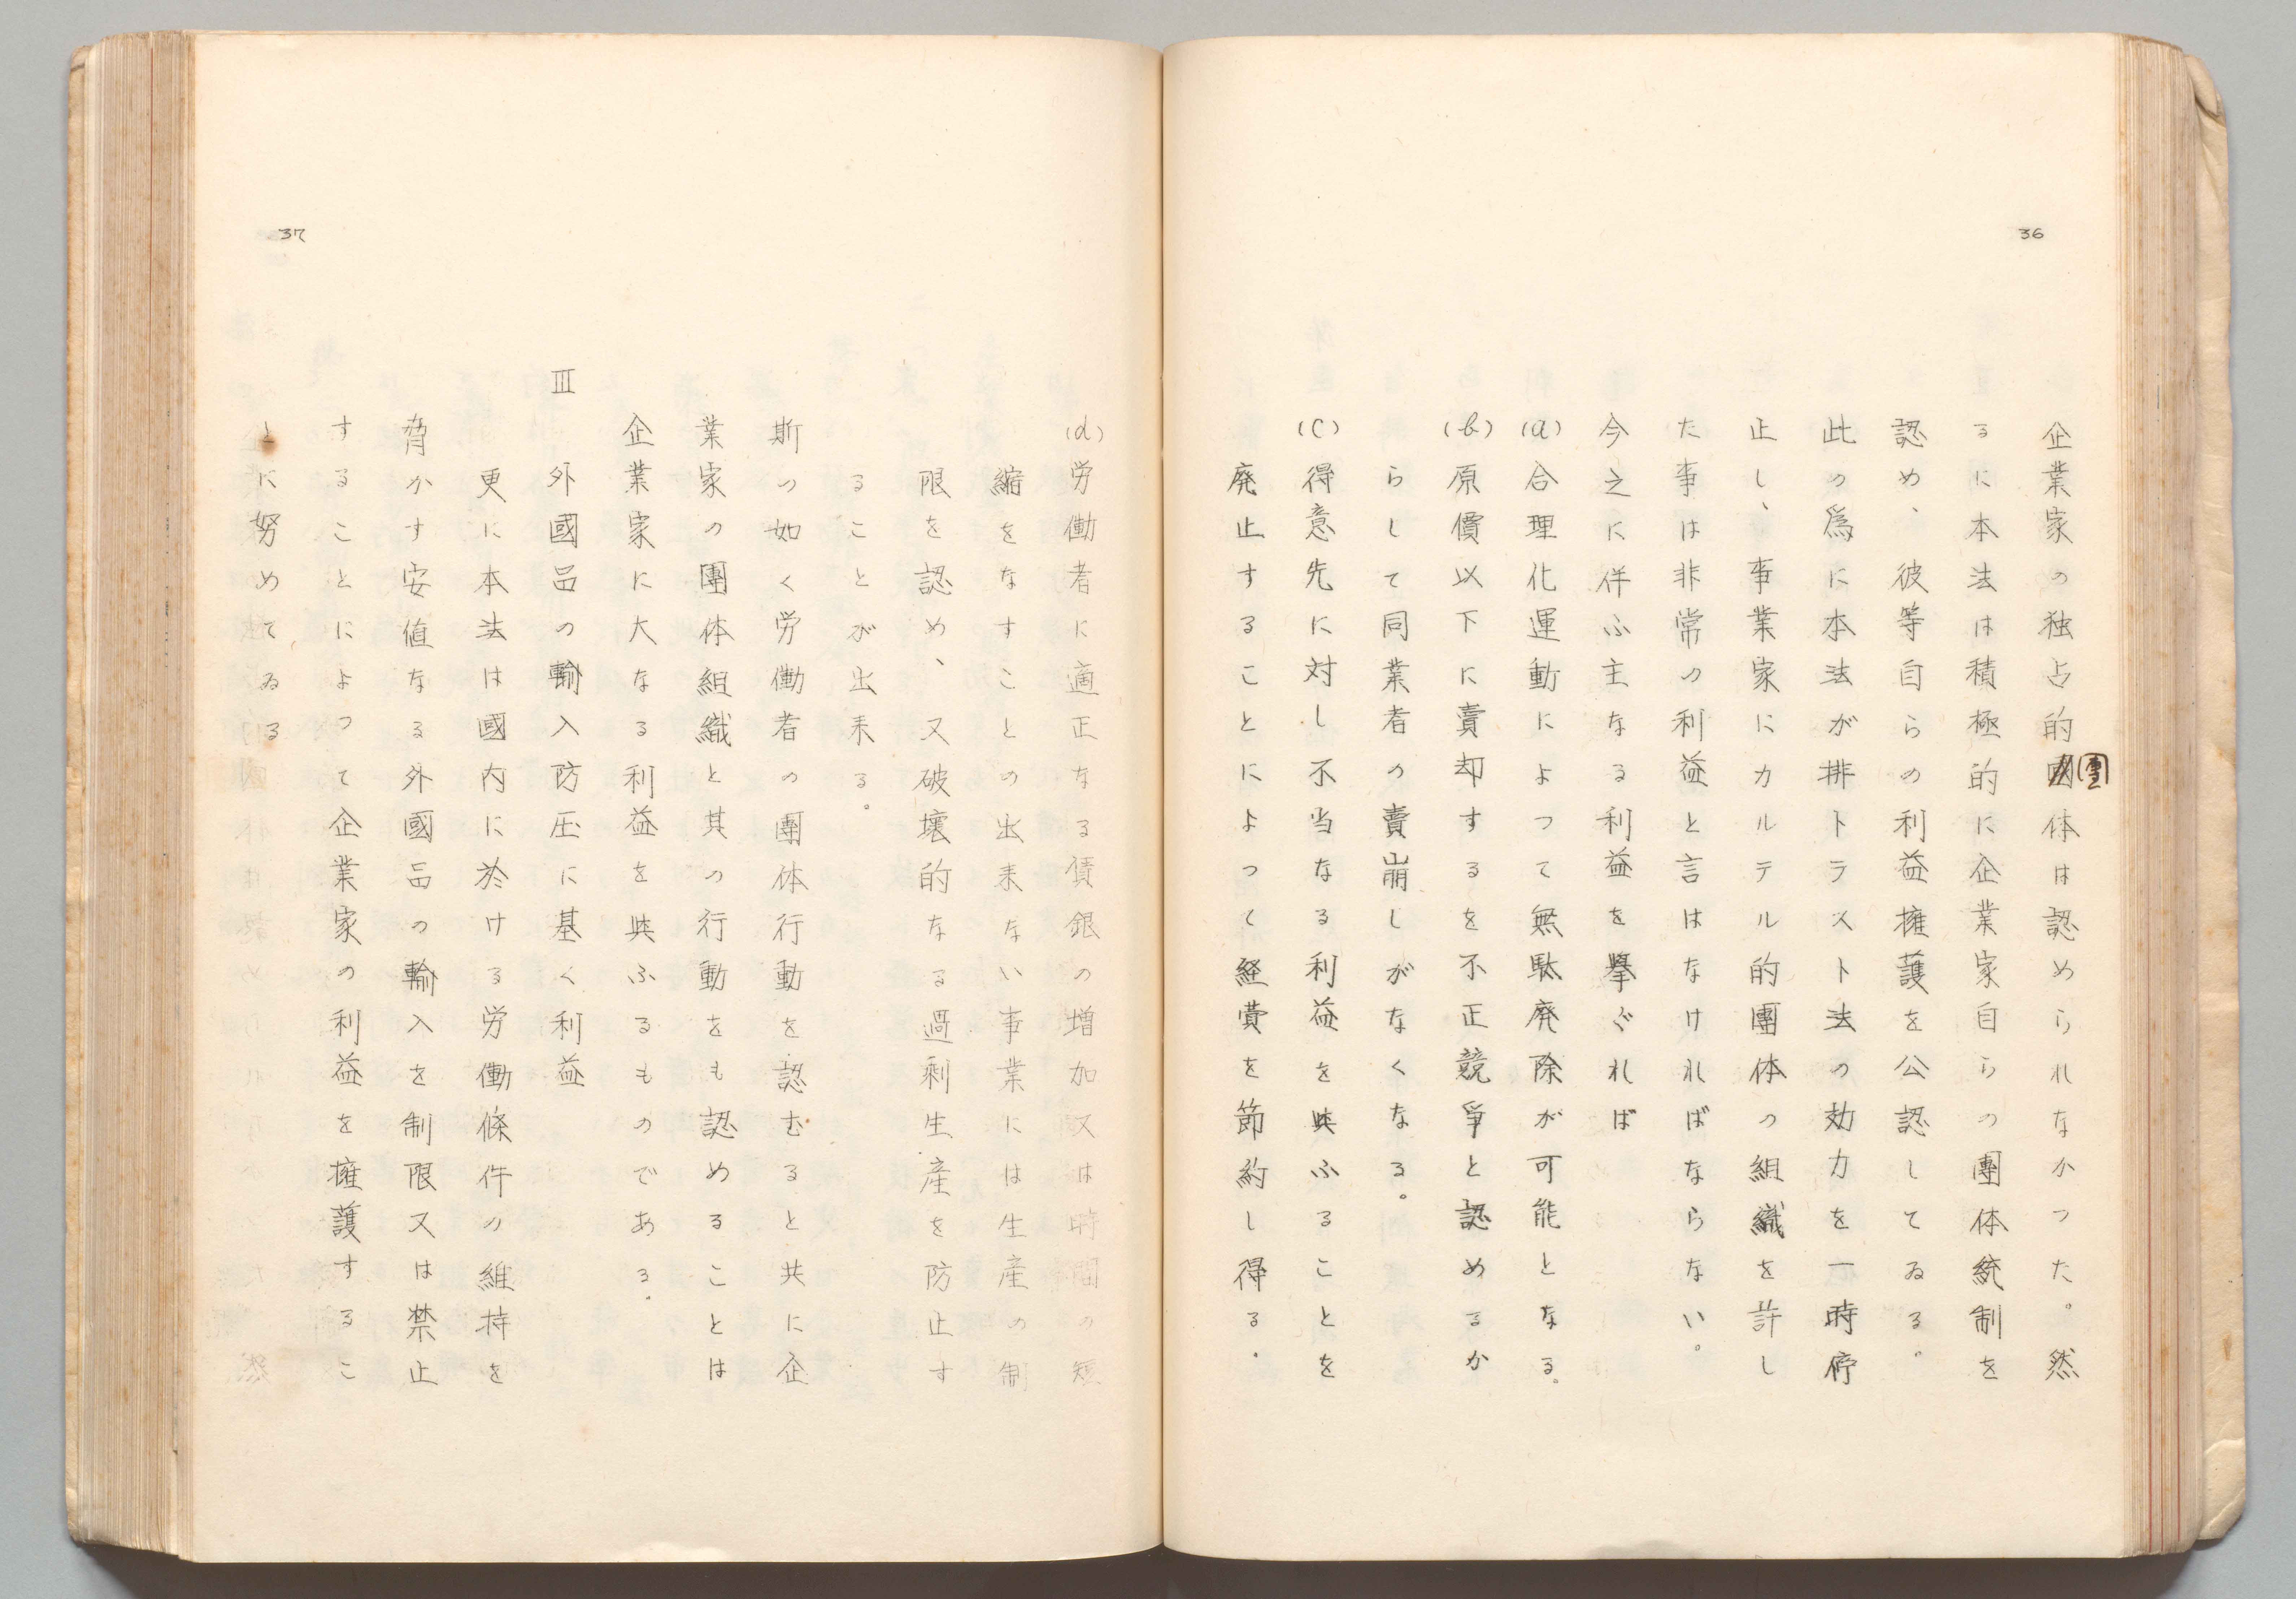 36
企業家の独占的團体は認められなかつた。然
るに本法は積極的に企業家自らの團体統制を
認め、彼等自らの利益擁護を公認してゐる。
此の爲に本法が排トラスト法の効力を一時停
止し、事業家にカルテル的團体の組織を許し
た事は非常の利益と言はなければならない。
今之に伴ふ主なる利益を擧ぐれば
(a)合理化運動によつて無駄廃除が可能となる。
(b)原價以下に賣却するを不正競爭と認めるか
らして同業者の賣崩しがなくなる。
(c)得意先に対し不当なる利益を與ふることを
廃止することによつて経費を節約し得る.
37
(d)労働者に適正なる賃銀の増加又は時間の短
縮をなすことの出来ない事業には生産の制
限を認め、又破壊的なる過剰生産を防止す
ることが出来る。
斯の如く労働者の團体行動を認むると共に企
業家の團体組織と其の行動をも認めることは
企業家に大なる利益を與ふるものである.
III 外國品の輸入防圧に基く利益
更に本法は國内に於ける労働條件の維持を
脅かす安値なる外國品の輸入を制限又は禁止
することによつて企業家の利益を擁護するこ
とに努めてゐる